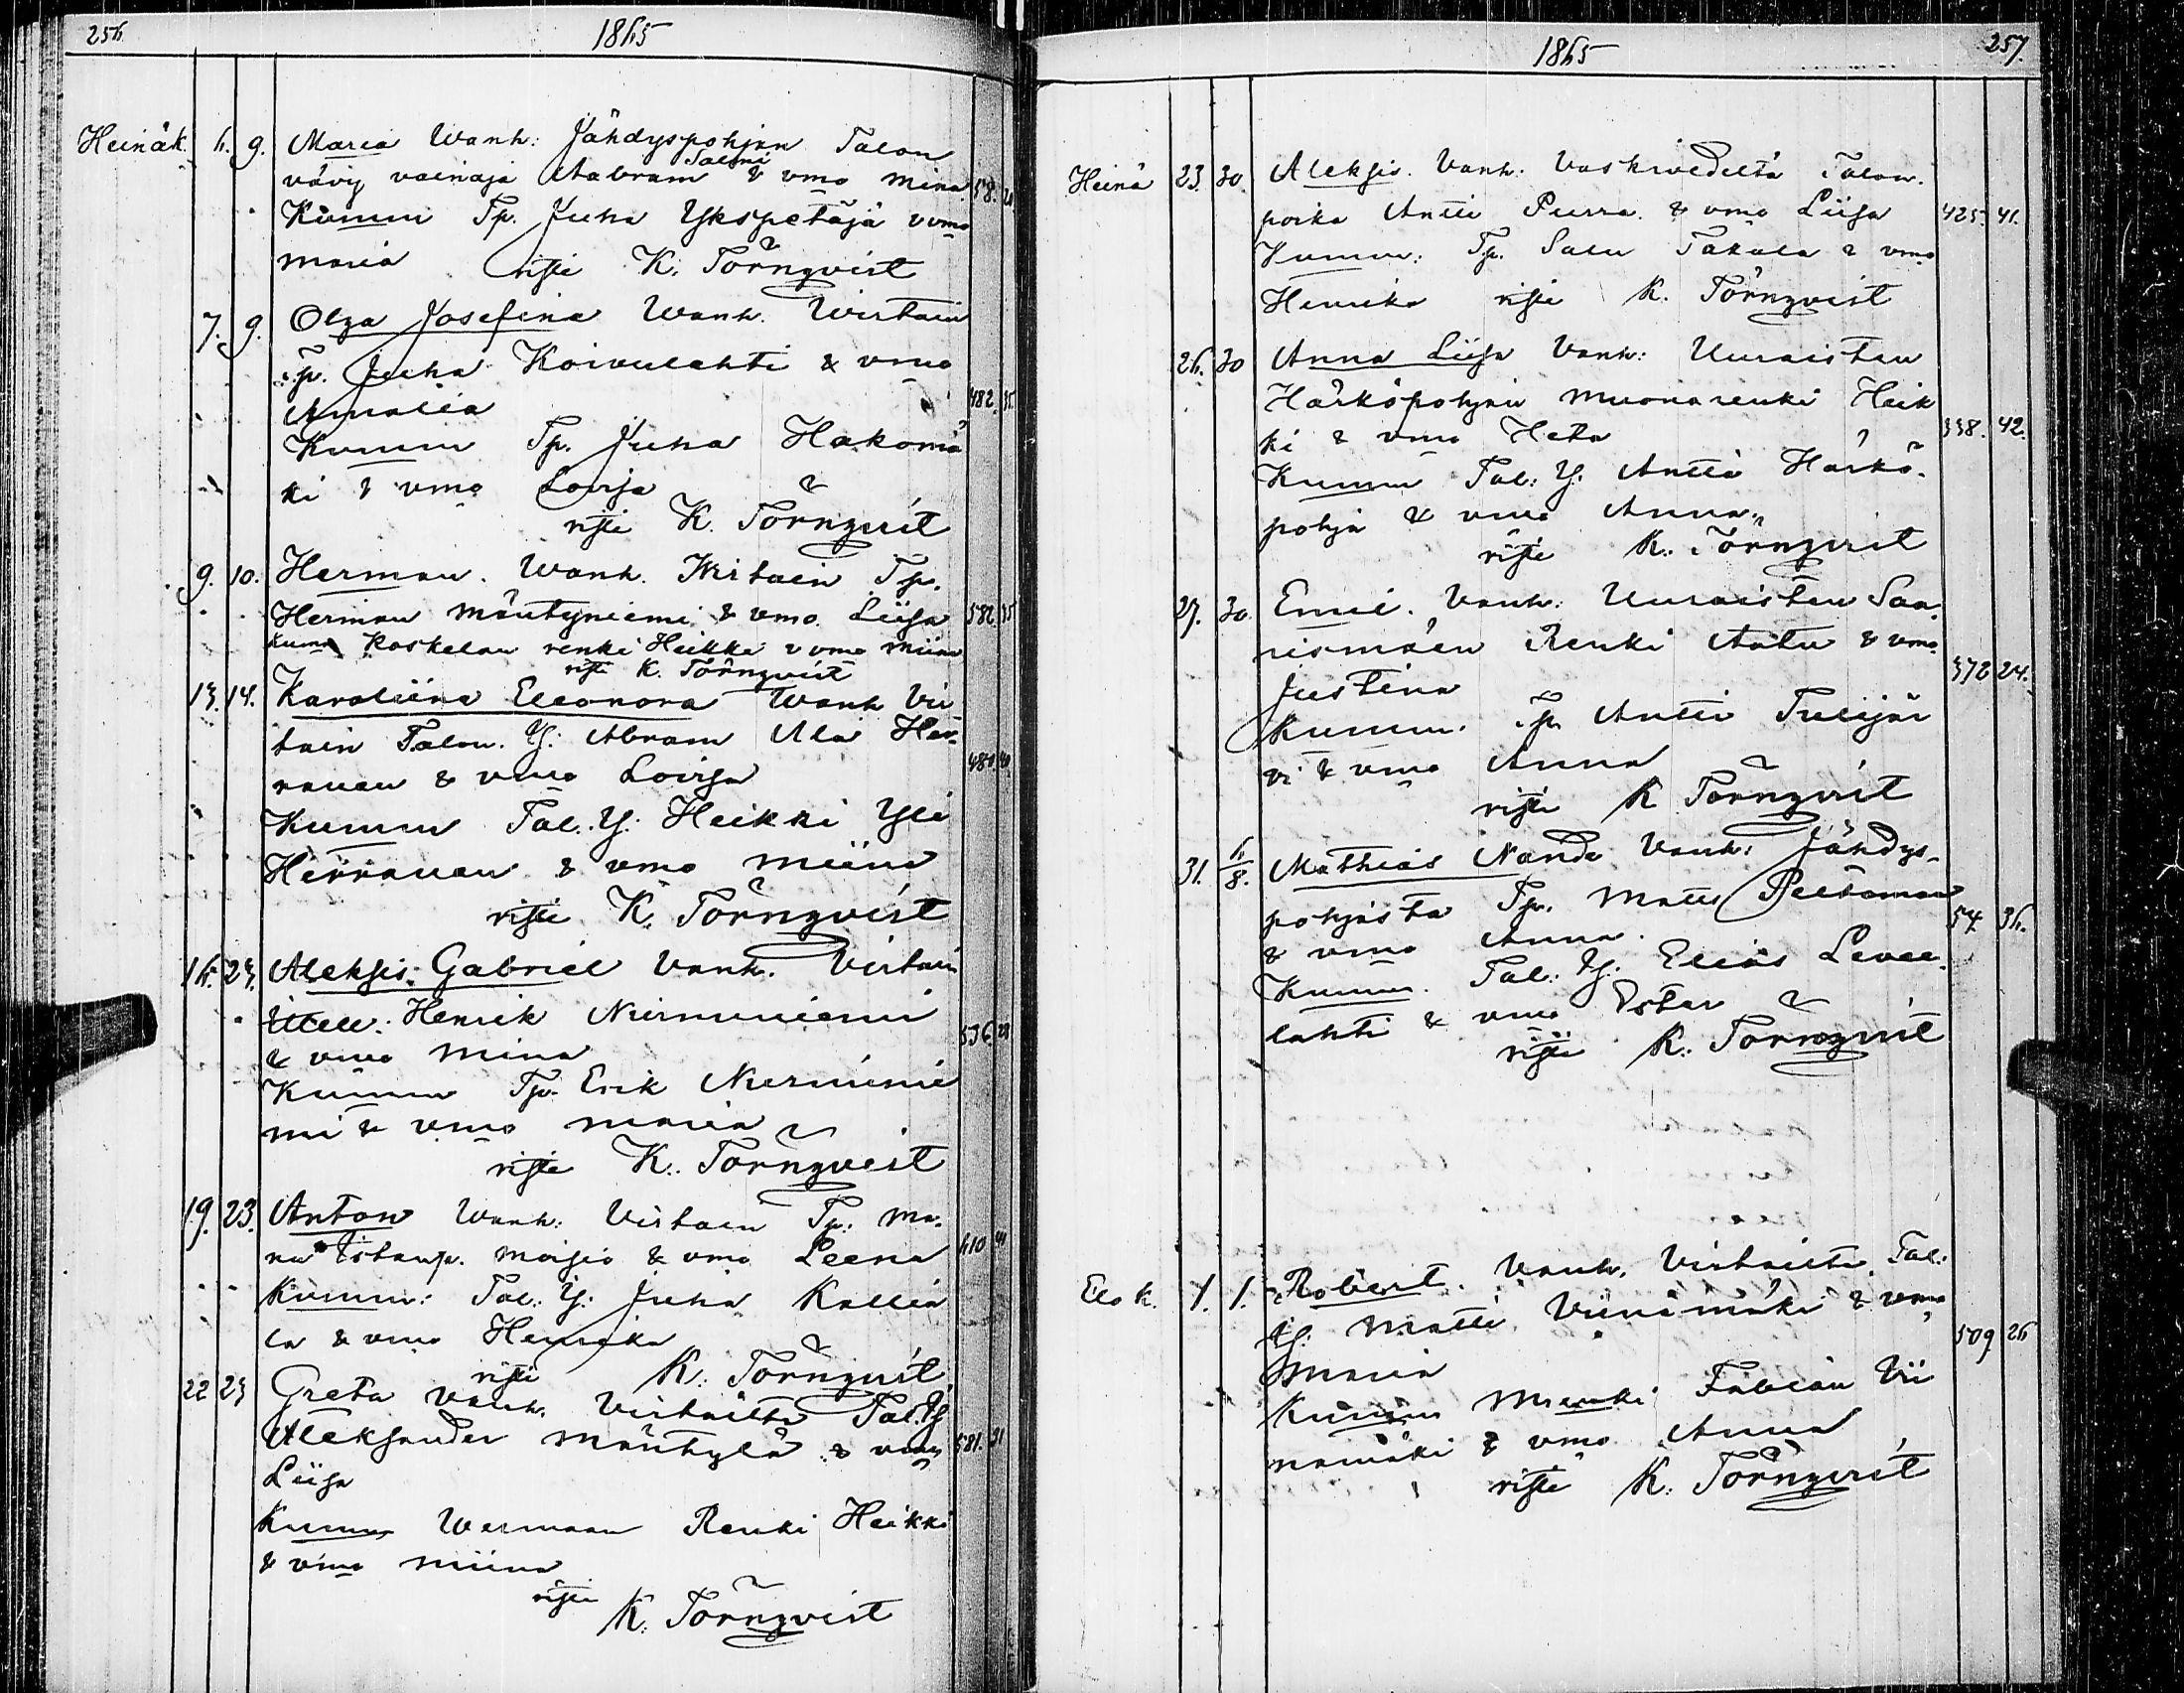 256
1865
Heinäk. 6. 9. Maria Wanh: Jähdyspohjan Talon
vävy vainaja Aabram Salmi & vmo Mina 58. 20
Kumm Tp. Juha Ykspetäjä v vmo
Maria risti K. Törnqvist
7. 9. Olga Josefina Wanh. Wirtain
Tp. Juha Koivulahti & vmo
Amalia 482. 35
Kumm Tp. Juha Hakomä
ki & vmo Lovisa
risti K. Törnqvist
9. 10. Herman. Wanh. Wirtain Tp.
Herman Mäntyniemi & vmo Liisa 582 35
Kumm Koskelan renki Heikki & vmo Miina
risti K. Törnqvist
13. 14. Karoliina Eleonora Wanh Vir
tain Talon. Y: Abram Ala Her-
ranen & vmo Lovisa 480 40
Kumm Tal. Y: Heikki Yli
Herranen & vmo Miina
risti K. Törnqvist
16. 23. Aleksis Gabriel Vanh. Virtain
Itsell. Henrik Nierminiemi 536 28
& vmo Mina
Kumm Tp. Erik Nierminie
mi & vmo Maria
risti K. Törnqvist
19. 23. Anton Wanh: Virtain Tp. Ma-
nu Istanp. Moisio & vmo Leena 610 41
Kumm: Tal: Y: Juha Kallia
la & vmo Henrika
risti K. Törnqvist
22 23 Greta Vanh. Virtailta Tal. Y
Aleksander Mäntylä & vmo 581. 31
Liisa
Kumm Wermaan Renki Heikki
& vmo Miina
risti K. Törnqvist
1865
257.
Heinä 23. 30. Aleksis. Vanh. Vaskivedeltä Talon.
poika Antti Purra & vmo Liisa 425. 41.
Kumm: Tp. Salu Takala & vmo
Henrika risti K. Törnqvist
26. 30 Anna Liisa Vanh: Uuraisten
Härköpohjan muonarenki Heik
ki & vmo Heta 338. 42.
Kumm Tal: Y. Antti Härkö-
pohja & vmo Anna
risti K. Törnqvist
27. 30 Emil. Vanh: Uuraisten Saa
rismäen Renki Aatu & vmo
Justina 372 24.
Kumm. Tp. Antti Tulijär
vi & vmo Anna
risti K Törnqvist
31. 6/8. Mathias Nanda Vanh: Jähdys-
pohjasta Tp. Matts Peltoman 54 36.
& vmo Anna.
Kumm. Tal: Y. Elias Levee-
lahti & vmo Ester
risti K. Törnqvist
Elo k. 1. 1. Robert. Vanh. Virtailta. Tal:
Y. Matti Viinamäki & vmo 509 26
Maria
Kumm Muonki Fabian Vii
namäki & vmo Anna
risti K. Törnqvist